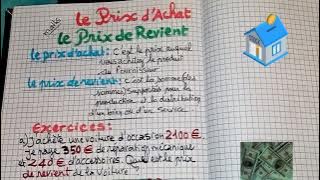 maths
Le Prix d'Achat
Le Prix de Revient
Le prix d'achat: C'est le prix auquel
vous achetez le produit
au fournisseur.
Le prix de revient: C'est la somme des
sommes supportés pour la
production et la distribution
d'un bien ou d'un service.
Exercices:
a) J'achète une voiture d'occasion 2100 €
Je paye 350 € de réparation mécanique
et 240 € d'accessoires. Quel est le prix
de revient de la voiture ?